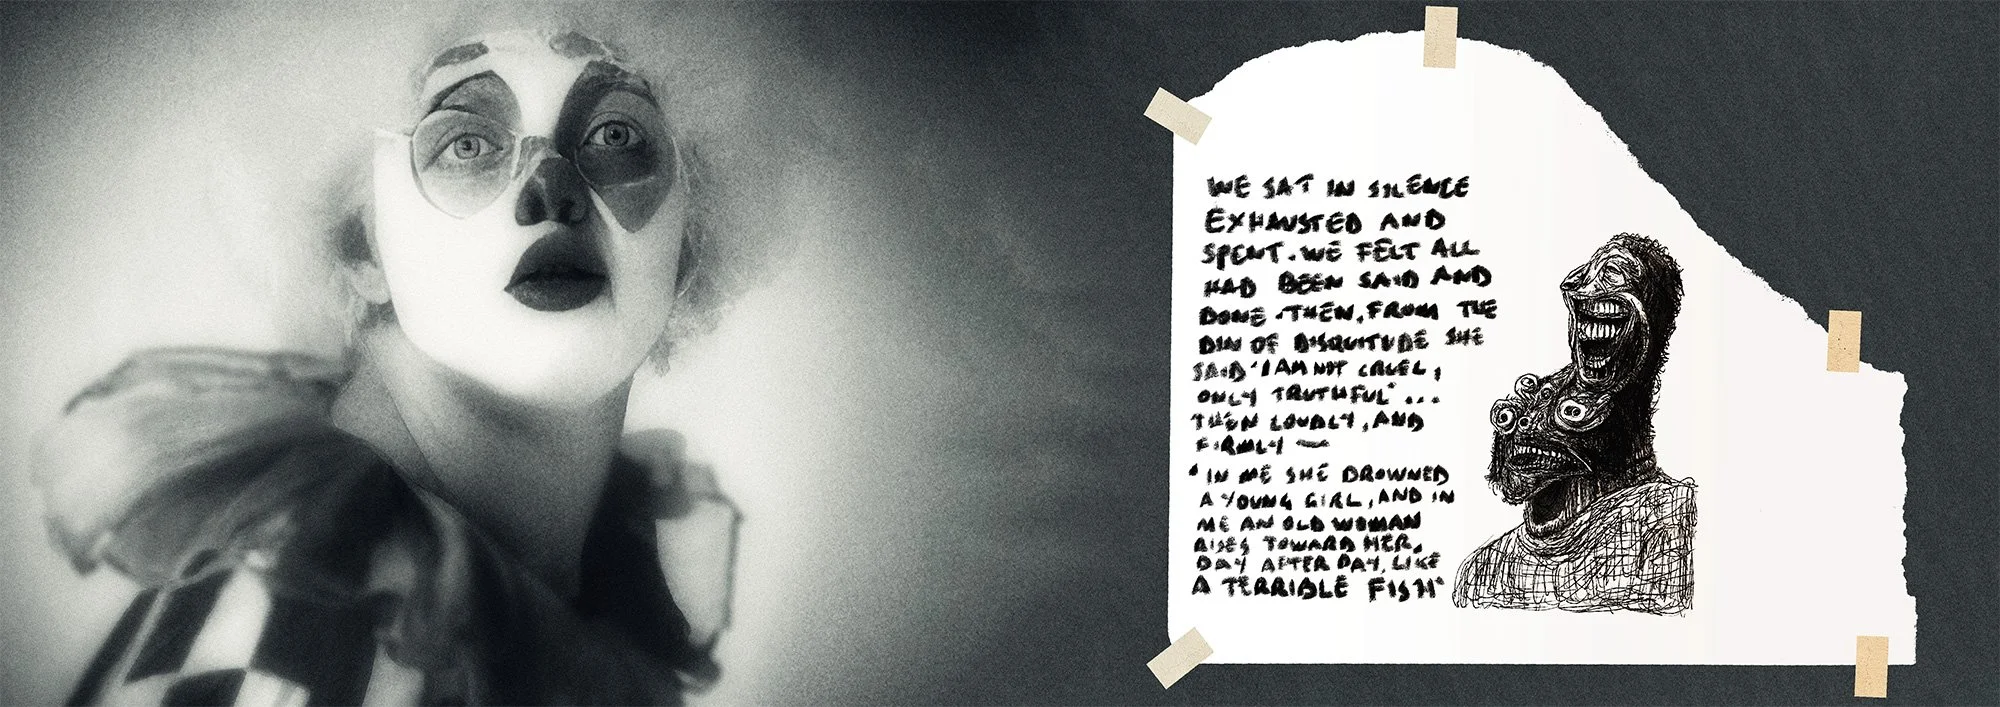 WE SAT IN SILENCE
EXHAUSTED AND
SPENT. WE FELT ALL
HAD BEEN SAID AND
DONE. THEN, FROM THE
DIN OF DISQUITUDE SHE
SAID 'I AM NOT CRUEL,
ONLY TRUTHFUL' ...
THEN LOUDLY, AND
FIRMLY —
'IN ME SHE DROWNED
A YOUNG GIRL, AND IN
ME AN OLD WOMAN
RISES TOWARD HER,
DAY AFTER DAY, LIKE
A TERRIBLE FISH'